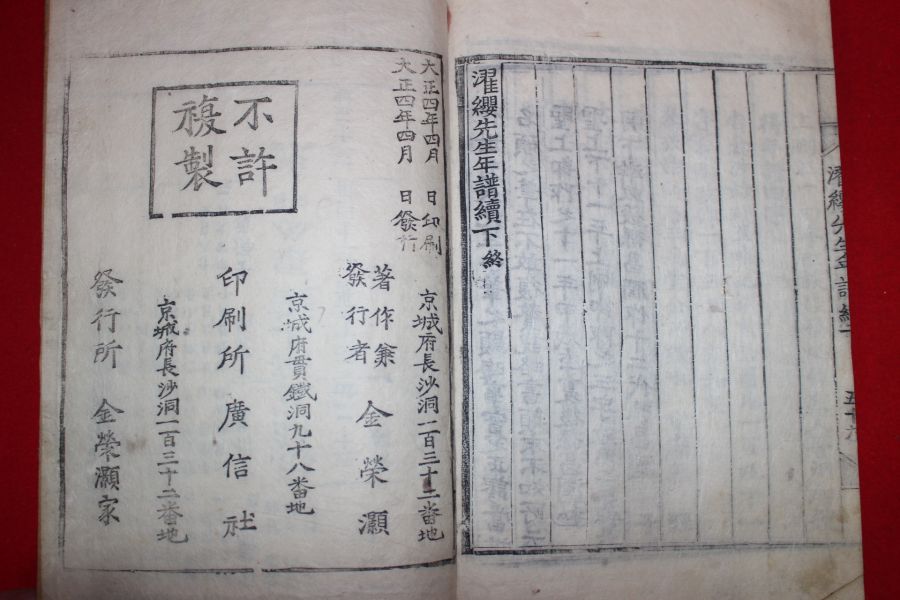 濯纓先生年譜續下
濯纓先生年譜續下 終
大正四年四月 日印刷
大正四年四月 日發行
不許
複製
京城府長沙洞一百三十二番地
著作兼
發行者 金榮灝
京城府貫鐵洞九十八番地
印刷所 廣信社
京城府長沙洞一百三十二番地
發行所 金榮灝家